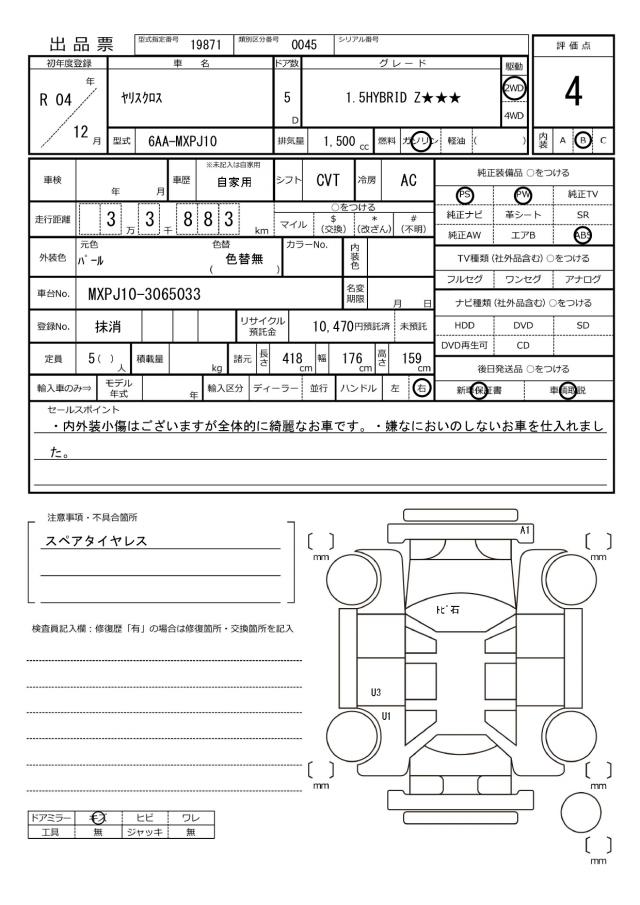 出品票
型式指定番号 19871 類別区分番号 0045 シリアル番号
評価点
4
初年度登録 車 名 ドア数 グレード 駆動
R 04 年 ヤリスクロス 5 D 1.5HYBRID Z★★★ 2WD
12 月 4WD
型式 6AA-MXPJ10 排気量 1,500 cc 燃料 ガソリン 軽油 ( )
内装 A B C
車検 年 月 車歴 ※未記入は自家用 自家用 シフト CVT 冷房 AC
走行距離 3 万 3 千 8 8 3 km
○をつける
マイル $(交換) *(改ざん) #(不明)
外装色 元色 パール 色替 ( 色替無 ) カラーNo. 内装色
車台No. MXPJ10-3065033 名変期限 月 日
登録No. 抹消 リサイクル預託金 10,470円預託済 未預託
定員 5( )人 積載量 kg 諸元 長さ 418 cm 幅 176 cm 高さ 159 cm
輸入車のみ⇒ モデル年式 年 輸入区分 ディーラー 並行 ハンドル 左 右
純正装備品 ○をつける
PS PW 純正TV
純正ナビ 革シート SR
純正AW エアB ABS
TV種類 (社外品含む) ○をつける
フルセグ ワンセグ アナログ
ナビ種類 (社外品含む) ○をつける
HDD DVD SD
DVD再生可 CD
後日発送品 ○をつける
新車保証書 車輌取説
セールスポイント
・内外装小傷はございますが全体的に綺麗なお車です。・嫌なにおいのしないお車を仕入れまし
た。
注意事項・不具合箇所
スペアタイヤレス
検査員記入欄：修復歴「有」の場合は修復箇所・交換箇所を記入
A1
〔 〕mm
〔 〕mm
トビ石
U3
U1
〔 〕mm
〔 〕mm
〔 〕mm
ドアミラー キズ ヒビ ワレ
工具 無 ジャッキ 無